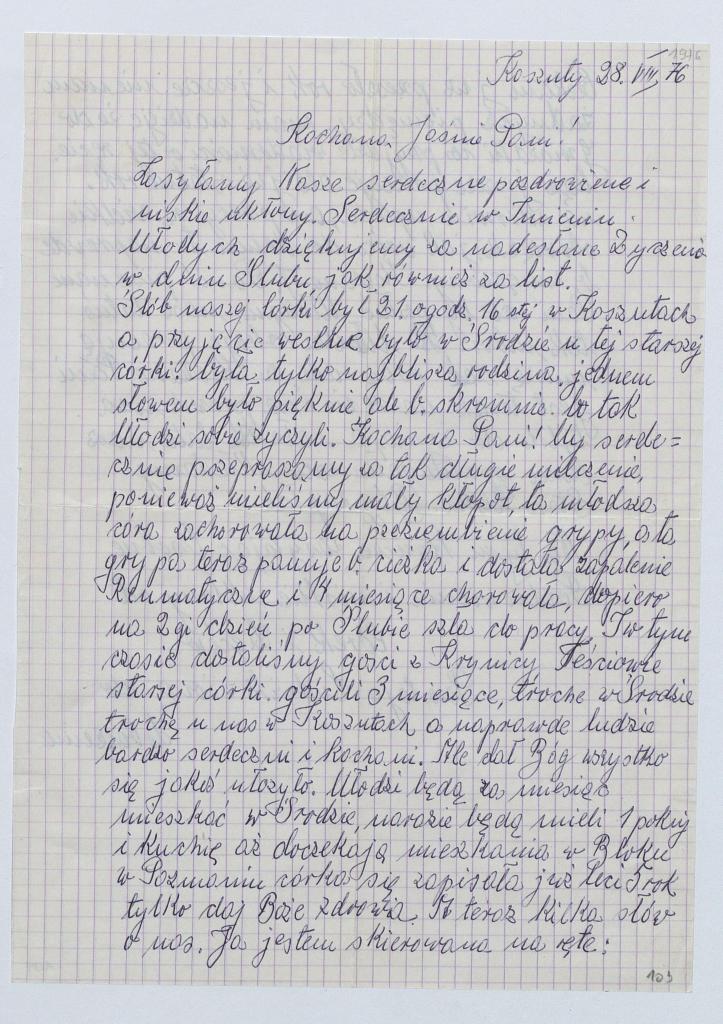 1976
Koszuty 28. VIII, 76
Kochana Jasnie Pani!
Zasyłamy Nasze serdeczne pozdrowienie i
niskie ukłony. Serdecznie w Imieniu
Młodych dziękujemy za nadesłane Życzenia
w dniu Ślubu jak również za list.
Ślób naszej córki był 21. o godz. 16 stej w Koszutach
a przyjęcie weselne było w Środzie u tej starszej
córki. była tylko najblisza rodzina, jednem
słowem było pięknie ale b. skromnie. bo tak
Młodzi sobie życzyli. Kochana Pani! My serde=
cznie przepraszamy za tak długie milczenie,
ponieważ mieliśmy mały kłopot, ta młodsza
córa zachorowała na przeziembienie grypy, a ta
grypa teraz panuje b. ciężka i dostała zapalenie
Reumatyczne i 4 miesiące chorowała, dopiero
na 2gi dzień po Ślubie szła do pracy. I w tym
czasie dostaliśmy gości z Krynicy Teściowie
starszej córki. gościli 3 miesiące, troche w Środzie
trochę u nas w Koszutach a naprawde ludzie
bardzo serdeczni i kochani. Ale dał Bóg wszystko
się jakoś ułożyło. Młodzi będą za miesiąc
mieszkać w Środzie, narazie będą mieli 1 pokój
i kuchnię aż doczekają mieszkania w Bloku
w Poznaniu córka się zapisała już leci 5 rok
tylko daj Boże zdrowia. A teraz kilka słów
o nas. Ja jestem skierowana na rętę:
103